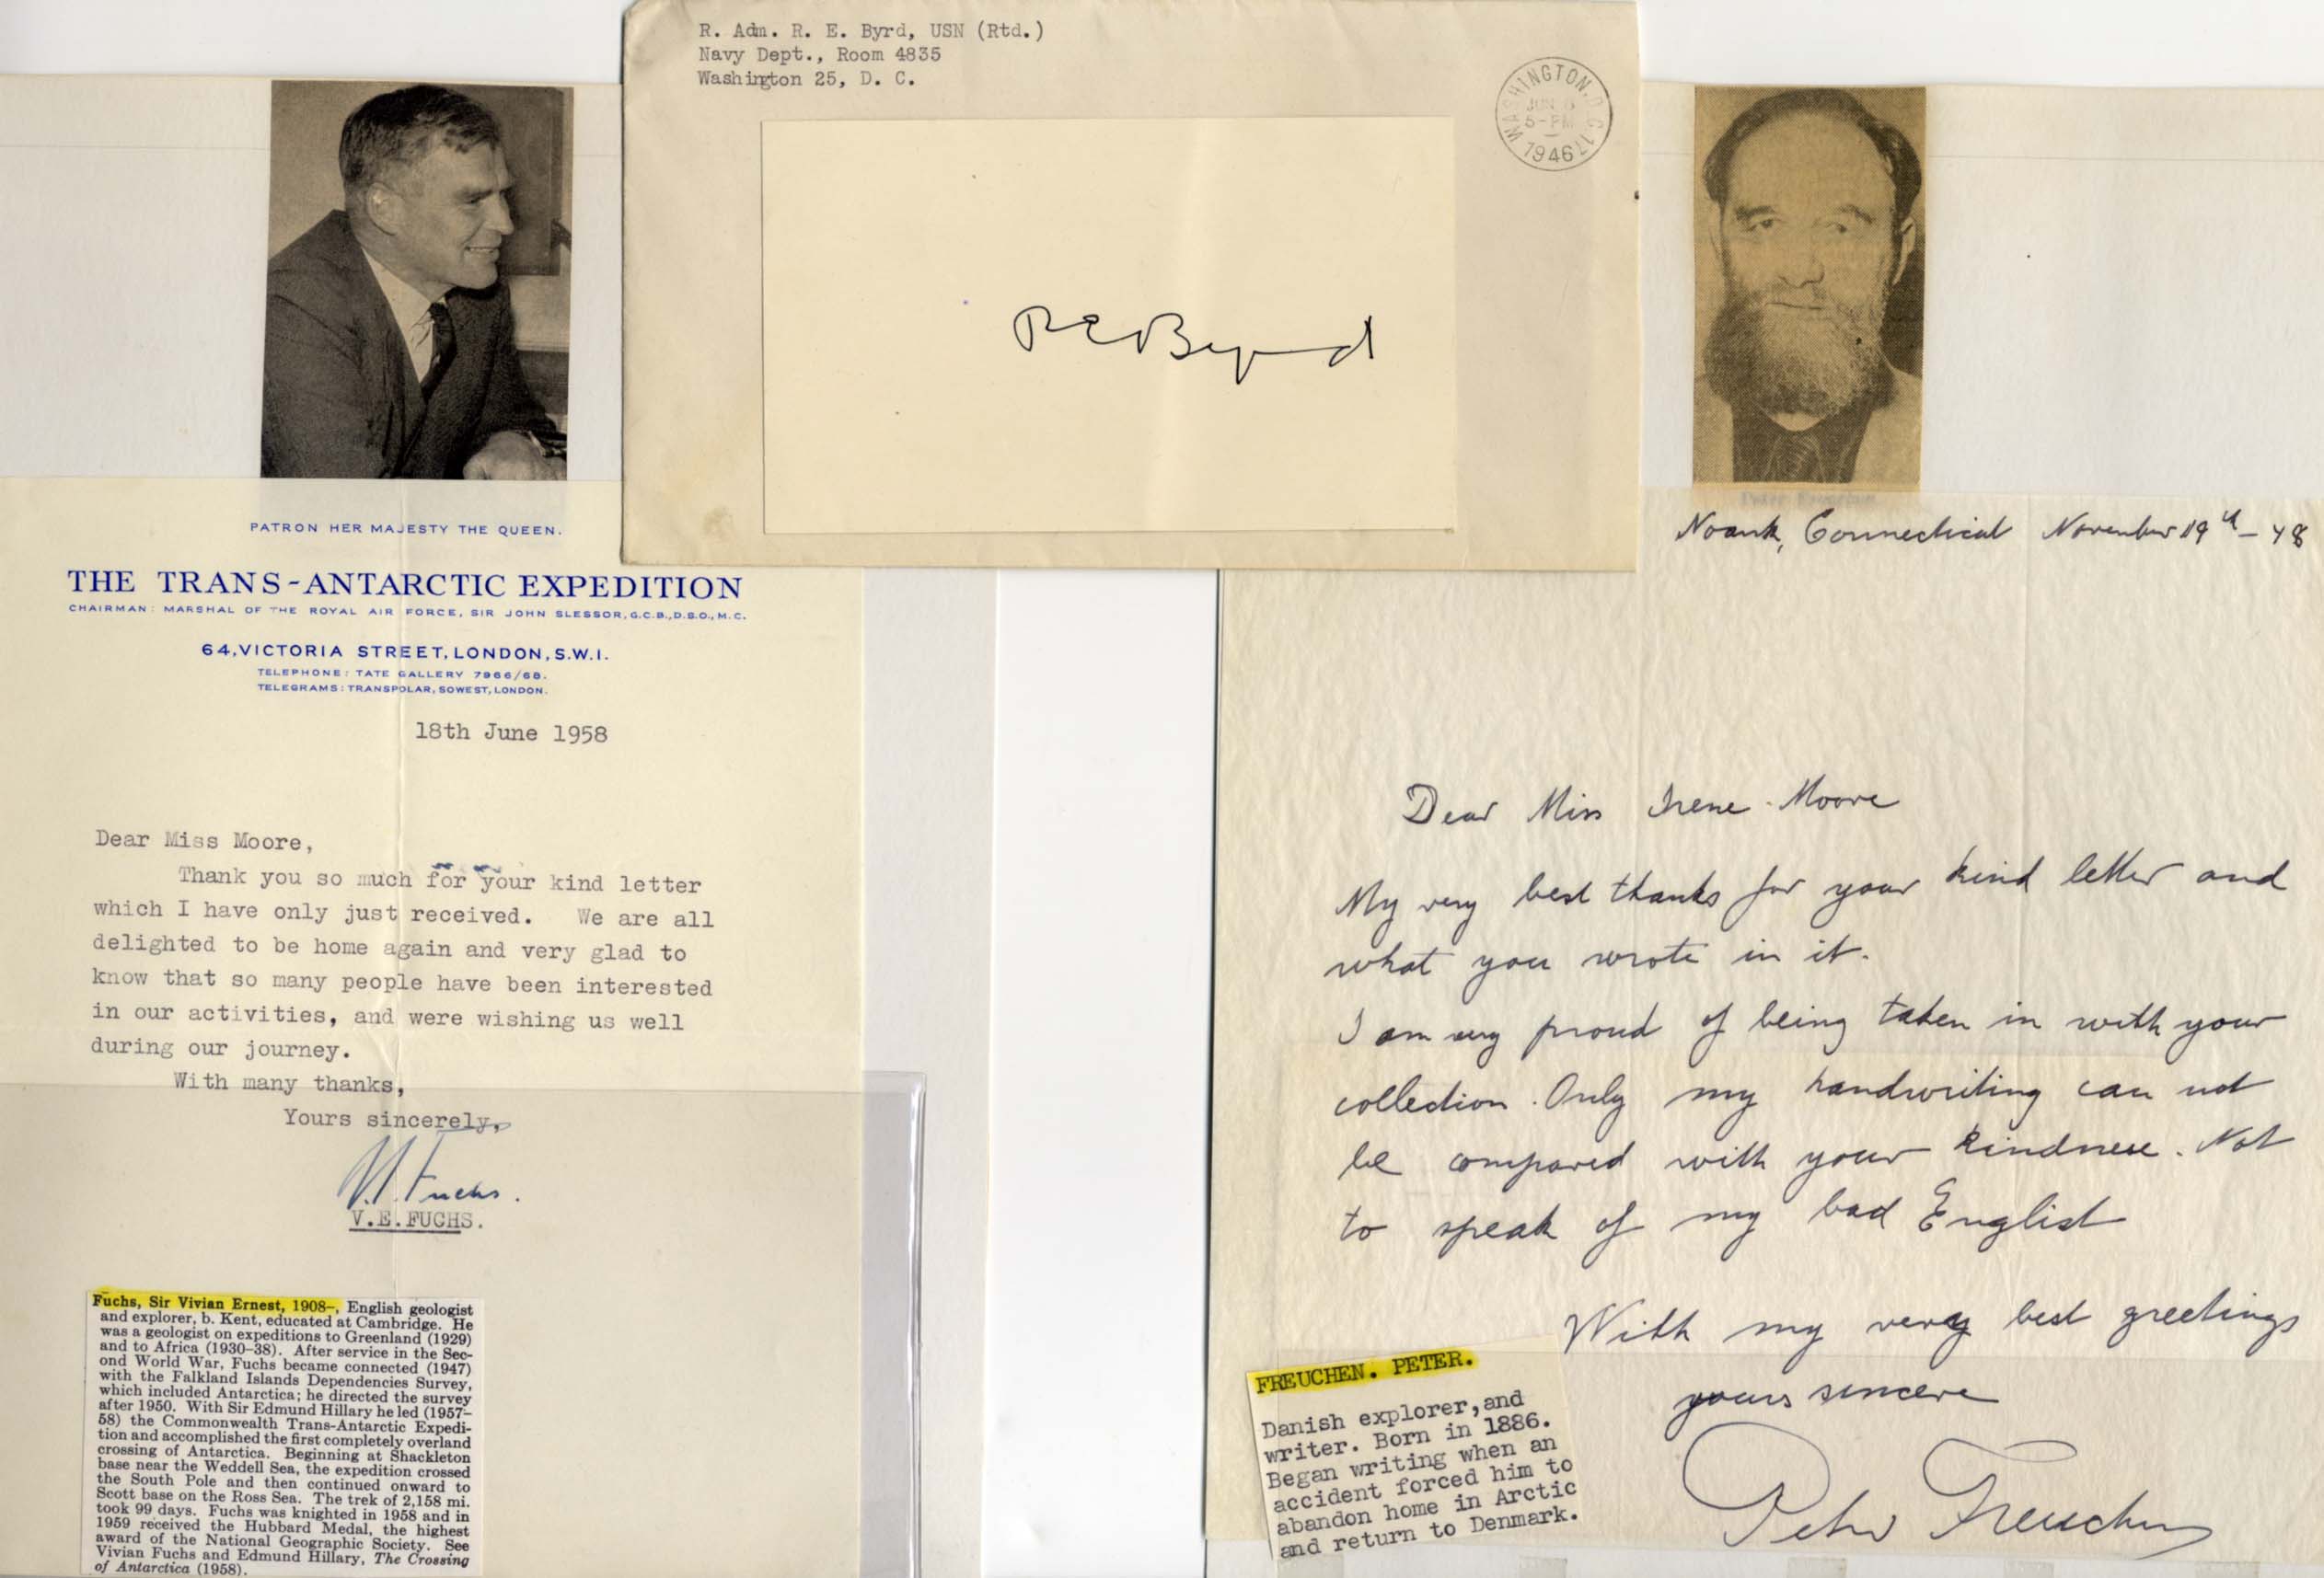 R. Adm. R. E. Byrd, USN (Rtd.)
Navy Dept., Room 4835
Washington 25, D. C.
WASHINGTON, D.C. 17
JUN 6
5-PM
1946
R E Byrd
PATRON HER MAJESTY THE QUEEN.
THE TRANS-ANTARCTIC EXPEDITION
CHAIRMAN: MARSHAL OF THE ROYAL AIR FORCE, SIR JOHN SLESSOR, G.C.B., D.S.O., M.C.
64, VICTORIA STREET, LONDON, S.W.1.
TELEPHONE: TATE GALLERY 7966/68.
TELEGRAMS: TRANSPOLAR, SOWEST, LONDON.
18th June 1958
Dear Miss Moore,
Thank you so much for your kind letter
which I have only just received. We are all
delighted to be home again and very glad to
know that so many people have been interested
in our activities, and were wishing us well
during our journey.
With many thanks,
Yours sincerely,
V. Fuchs.
V.E.FUCHS.
Fuchs, Sir Vivian Ernest, 1908–, English geologist
and explorer, b. Kent, educated at Cambridge. He
was a geologist on expeditions to Greenland (1929)
and to Africa (1930–38). After service in the Sec-
ond World War, Fuchs became connected (1947)
with the Falkland Islands Dependencies Survey,
which included Antarctica; he directed the survey
after 1950. With Sir Edmund Hillary he led (1957–
58) the Commonwealth Trans-Antarctic Expedi-
tion and accomplished the first completely overland
crossing of Antarctica. Beginning at Shackleton
base near the Weddell Sea, the expedition crossed
the South Pole and then continued onward to
Scott base on the Ross Sea. The trek of 2,158 mi.
took 99 days. Fuchs was knighted in 1958 and in
1959 received the Hubbard Medal, the highest
award of the National Geographic Society. See
Vivian Fuchs and Edmund Hillary, The Crossing
of Antarctica (1958).
Peter Freuchen
Noank, Connecticut November 19th - 48
Dear Miss Irene Moore
My very best thanks for your kind letter and
what you wrote in it.
I am very proud of being taken in with your
collection. Only my handwriting can not
be compared with your kindness. Not
to speak of my bad English
With my very best greetings
yours sincere
Peter Freuchen
FREUCHEN. PETER.
Danish explorer, and
writer. Born in 1886.
Began writing when an
accident forced him to
abandon home in Arctic
and return to Denmark.